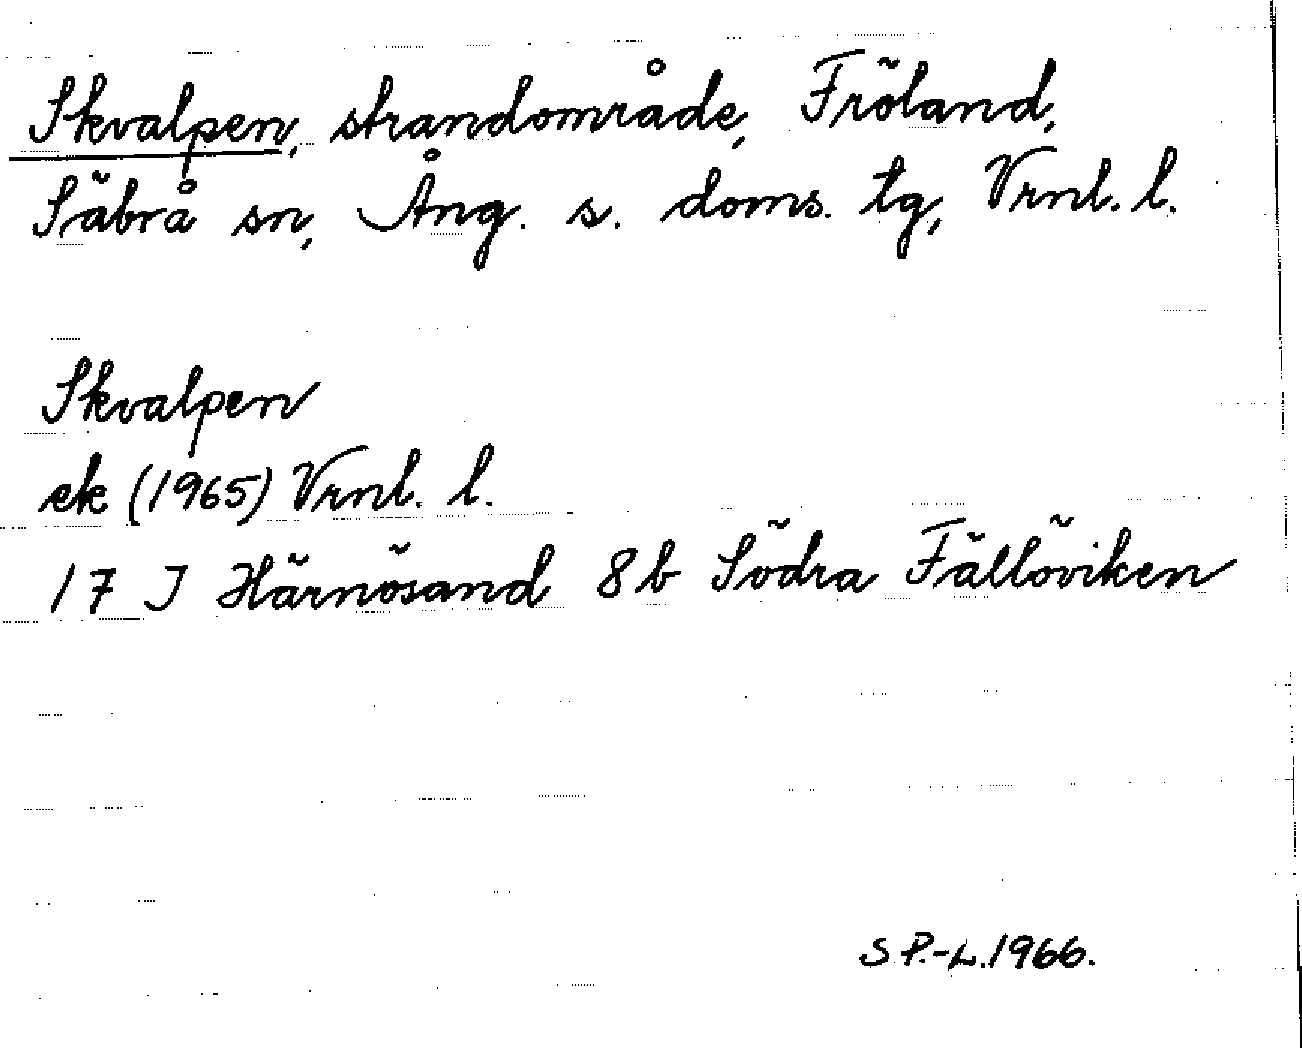 Skvalpen, strandområde, Fröland,
Säbrå sn, Ång. s. doms. tg, Vrnl. l.
Skvalpen
ek (1965) Vrnl. l.
17 J Härnösand 8b Södra Fällöviken
S P.-L. 1966.